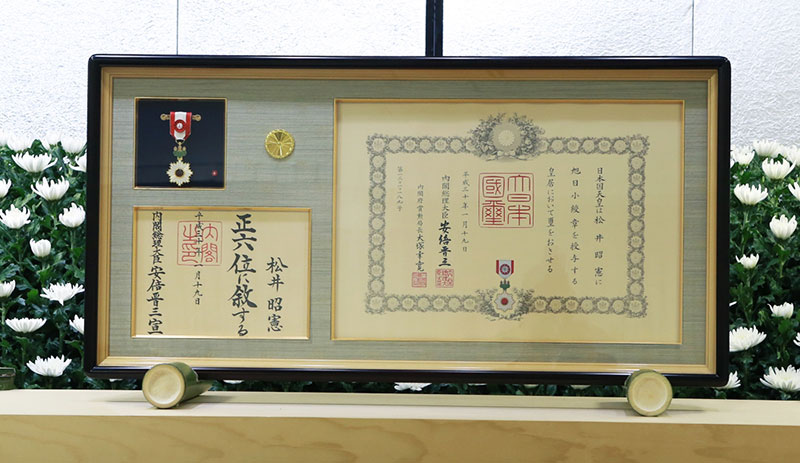 日本国天皇は松井昭憲に
旭日小綬章を授与する
皇居において璽をおさせる
大日本
國璽
平成三十年一月十九日
内閣総理大臣安倍晋三
内閣府賞勲局長大塚幸寛
松井昭憲
正六位に叙する
平成三十年一月十九日
内閣総理大臣安倍晋三宣
内閣
之印